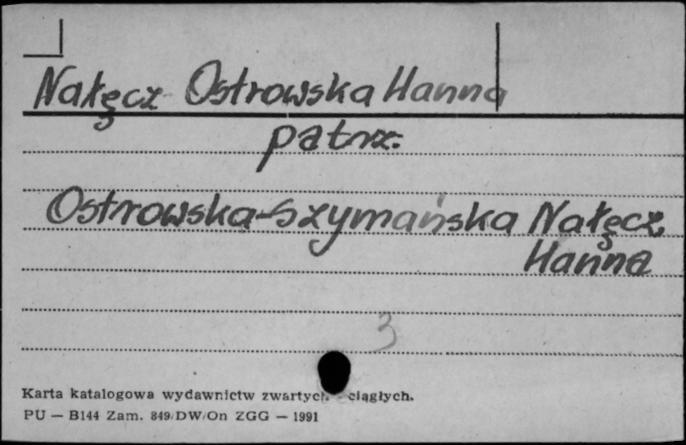 Nałęcz Ostrowska Hanna
patrz:
Ostrowska-Szymańska Nałęcz
Hanna
3
Karta katalogowa wydawnictw zwartych ciągłych.
PU — B144 Zam. 849/DW/On ZGG — 1991